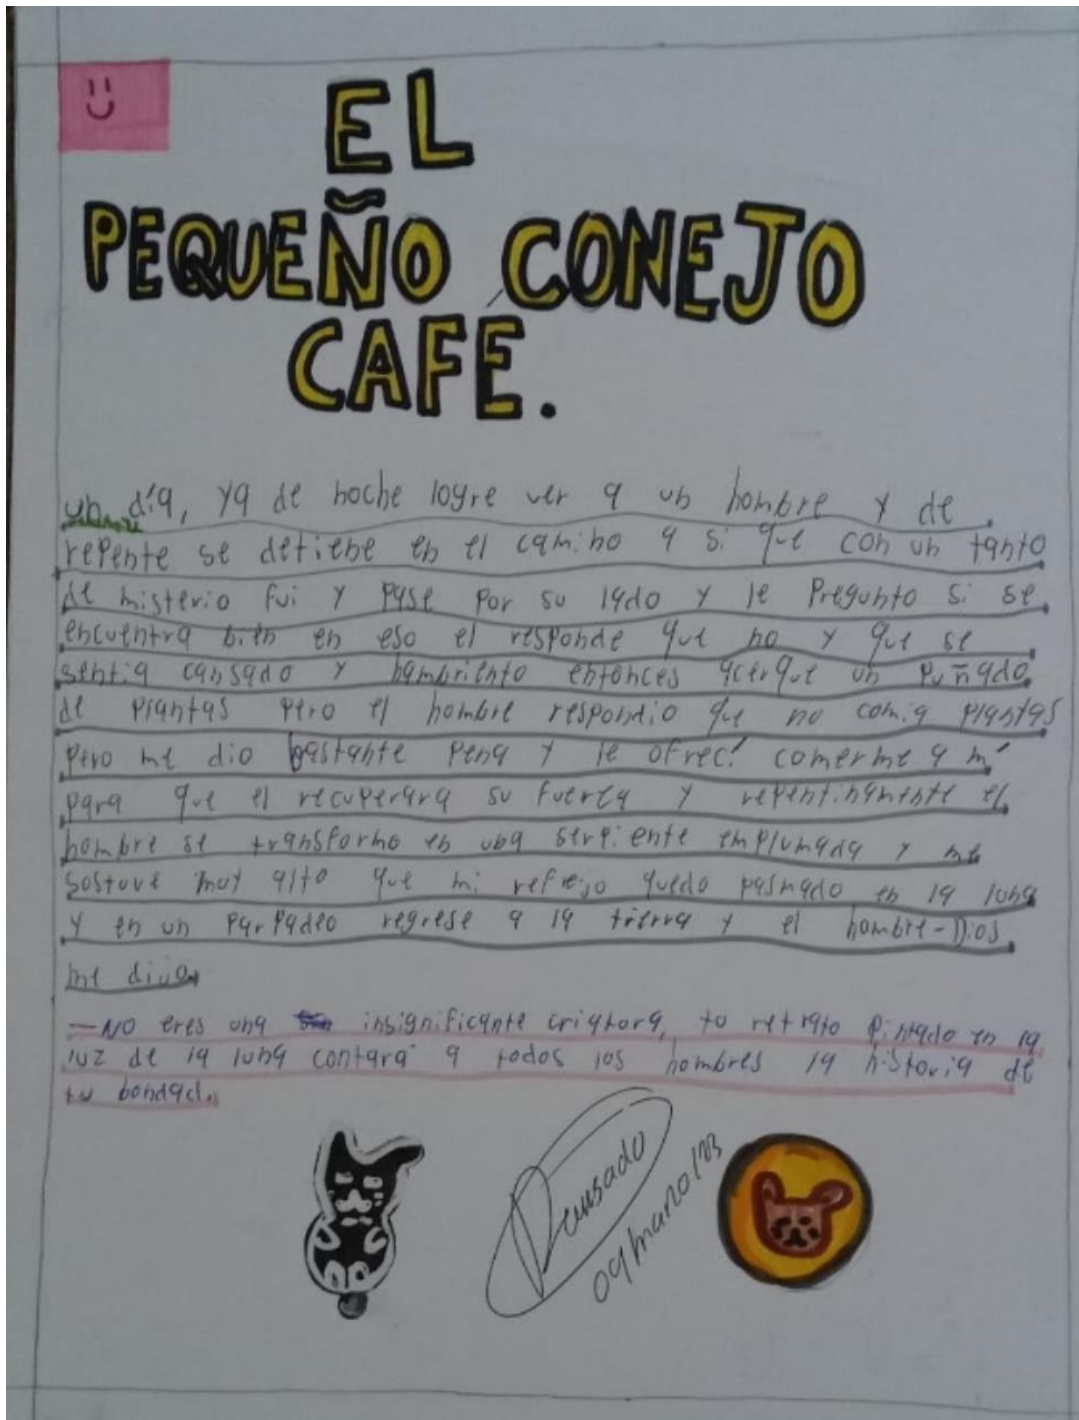 EL
PEQUEÑO CONEJO
CAFÉ.
un día, ya de noche logre ver a un hombre y de
repente se detiene en el camino a si que con un tanto
de misterio fui y pase por su lado y le Pregunto si se
encuentra bien en eso el responde que no y que se
sentia cansado y hambriento entonces acerque un Puñado
de plantas pero el hombre respondio que no comia plantas
Pero me dio bastante Pena y le ofreci comerme a mí
para que el recuperara su fuerza y repentinamente el
hombre se transformo en una serpiente emplumada y me
sostuve muy alto que mi reflejo quedo pasmado en la luna
y en un parpadeo regrese a la tierra y el hombre-Dios
me
—No eres una insignificante criatora, tu retrato Pintado en la
luz de la luna contara a todos los hombres la historia de
tu bondad.
Revisado
09/marzo/23